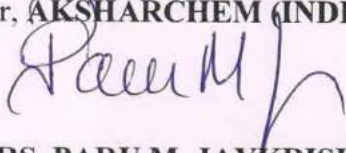 r, AKSHARCHEM (INDI
Paru M J
RS. PARU M. JAYKRISH